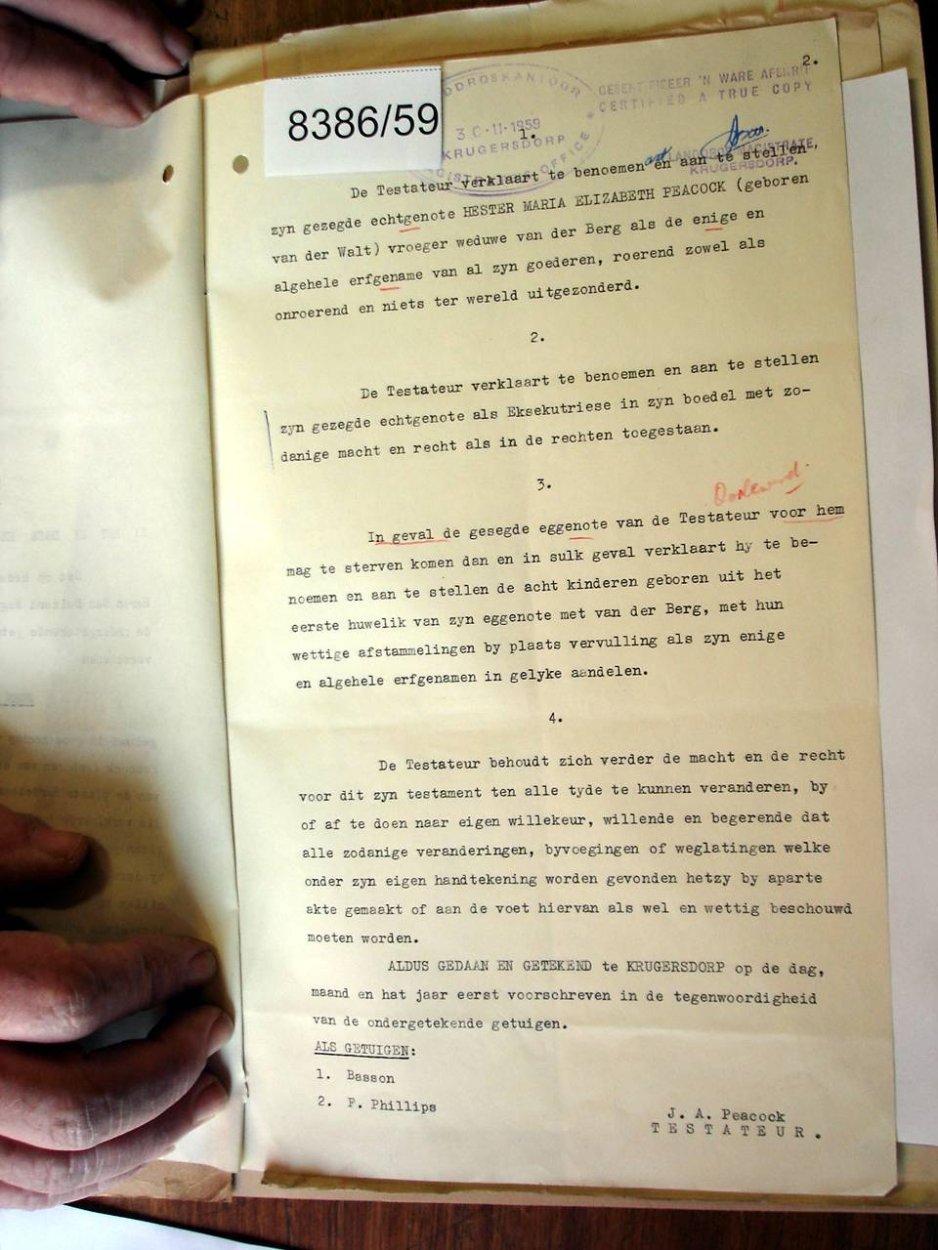 2.
8386/59
30-11-1959
KRUGERSDORP
GESERTIFISEER 'N WARE AFSKRIF
CERTIFIED A TRUE COPY
LANDDROS/MAGISTRATE,
KRUGERSDORP.
1.
De Testateur verklaart te benoemen en aan te stellen
zyn gezegde echtgenote HESTER MARIA ELIZABETH PEACOCK (geboren
van der Walt) vroeger weduwe van der Berg als de enige en
algehele erfgename van al zyn goederen, roerend zowel als
onroerend en niets ter wereld uitgezonderd.
2.
De Testateur verklaart te benoemen en aan te stellen
zyn gezegde echtgenote als Eksekutriese in zyn boedel met zo-
danige macht en recht als in de rechten toegestaan.
3.
In geval de gesegde eggenote van de Testateur voor hem
mag te sterven komen dan en in sulk geval verklaart hy te be-
noemen en aan te stellen de acht kinderen geboren uit het
eerste huwelik van zyn eggenote met van der Berg, met hun
wettige afstammelingen by plaats vervulling als zyn enige
en algehele erfgenamen in gelyke aandelen.
4.
De Testateur behoudt zich verder de macht en de recht
voor dit zyn testament ten alle tyde te kunnen veranderen, by
of af te doen naar eigen willekeur, willende en begerende dat
alle zodanige veranderingen, byvoegingen of weglatingen welke
onder zyn eigen handtekening worden gevonden hetzy by aparte
akte gemaakt of aan de voet hiervan als wel en wettig beschouwd
moeten worden.
ALDUS GEDAAN EN GETEKEND te KRUGERSDORP op de dag,
maand en hat jaar eerst voorschreven in de tegenwoordigheid
van de ondergetekende getuigen.
ALS GETUIGEN:
1. Basson
2. F. Phillips
J. A. Peacock
TESTATEUR.